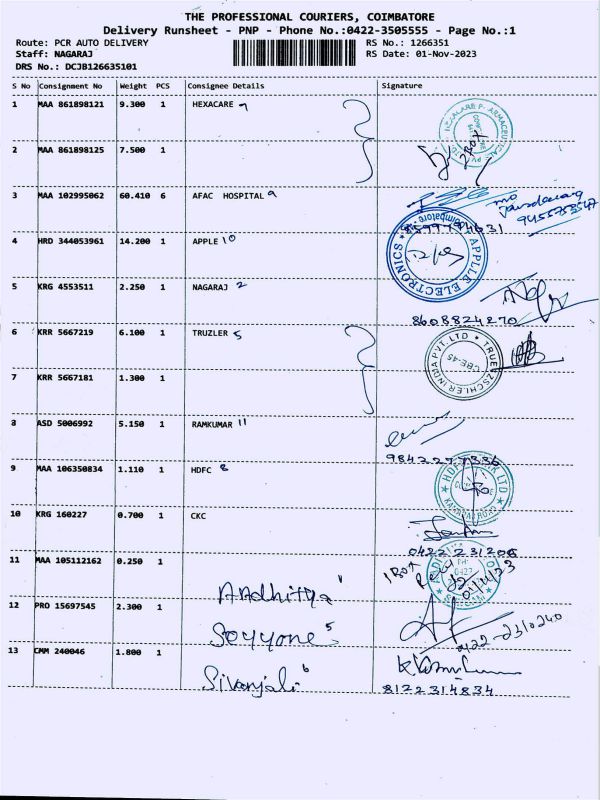 THE PROFESSIONAL COURIERS, COIMBATORE
Delivery Runsheet - PNP - Phone No.:0422-3505555 - Page No.:1
Route: PCR AUTO DELIVERY RS No.: 1266351
Staff: NAGARAJ RS Date: 01-Nov-2023
DRS No.: DCJB126635101
S No Consignment No Weight PCS Consignee Details Signature
1 MAA 861898121 9.300 1 HEXACARE
2 MAA 861898125 7.500 1
3 MAA 102995062 60.410 6 AFAC HOSPITAL 9
4 HRD 344053961 14.200 1 APPLE 10
APPLLE ELECTRONICS
Coimbatore
5 KRG 4553511 2.250 1 NAGARAJ 2
8608824870
6 KRR 5667219 6.100 1 TRUZLER 5
TRUETZSCHLER INDIA PVT. LTD
CBE-45
7 KRR 5667181 1.300 1
8 ASD 5006992 5.150 1 RAMKUMAR 11
9 MAA 106350834 1.110 1 HDFC 8
10 KRG 160227 0.700 1 CKC
0422 231206
11 MAA 105112162 0.250 1 Aradhitya
12 PRO 15697545 2.300 1 Soyyone 5
0422-2310240
13 CMM 240046 1.800 1 Sivanjali 6
8122314834